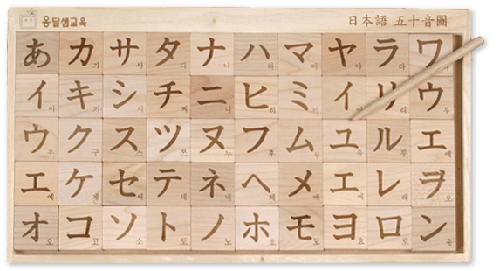 옹달샘교육 日本語 五十音圖
あ カ サ タ ナ ハ マ ヤ ラ ワ
イ キ シ チ ニ ヒ ミ イ リ ウ
ウ ク ス ツ ヌ フ ム ユ ル エ
エ ケ セ テ ネ ヘ メ エ レ ヲ
オ コ ソ ト ノ ホ モ ヨ ロ ン